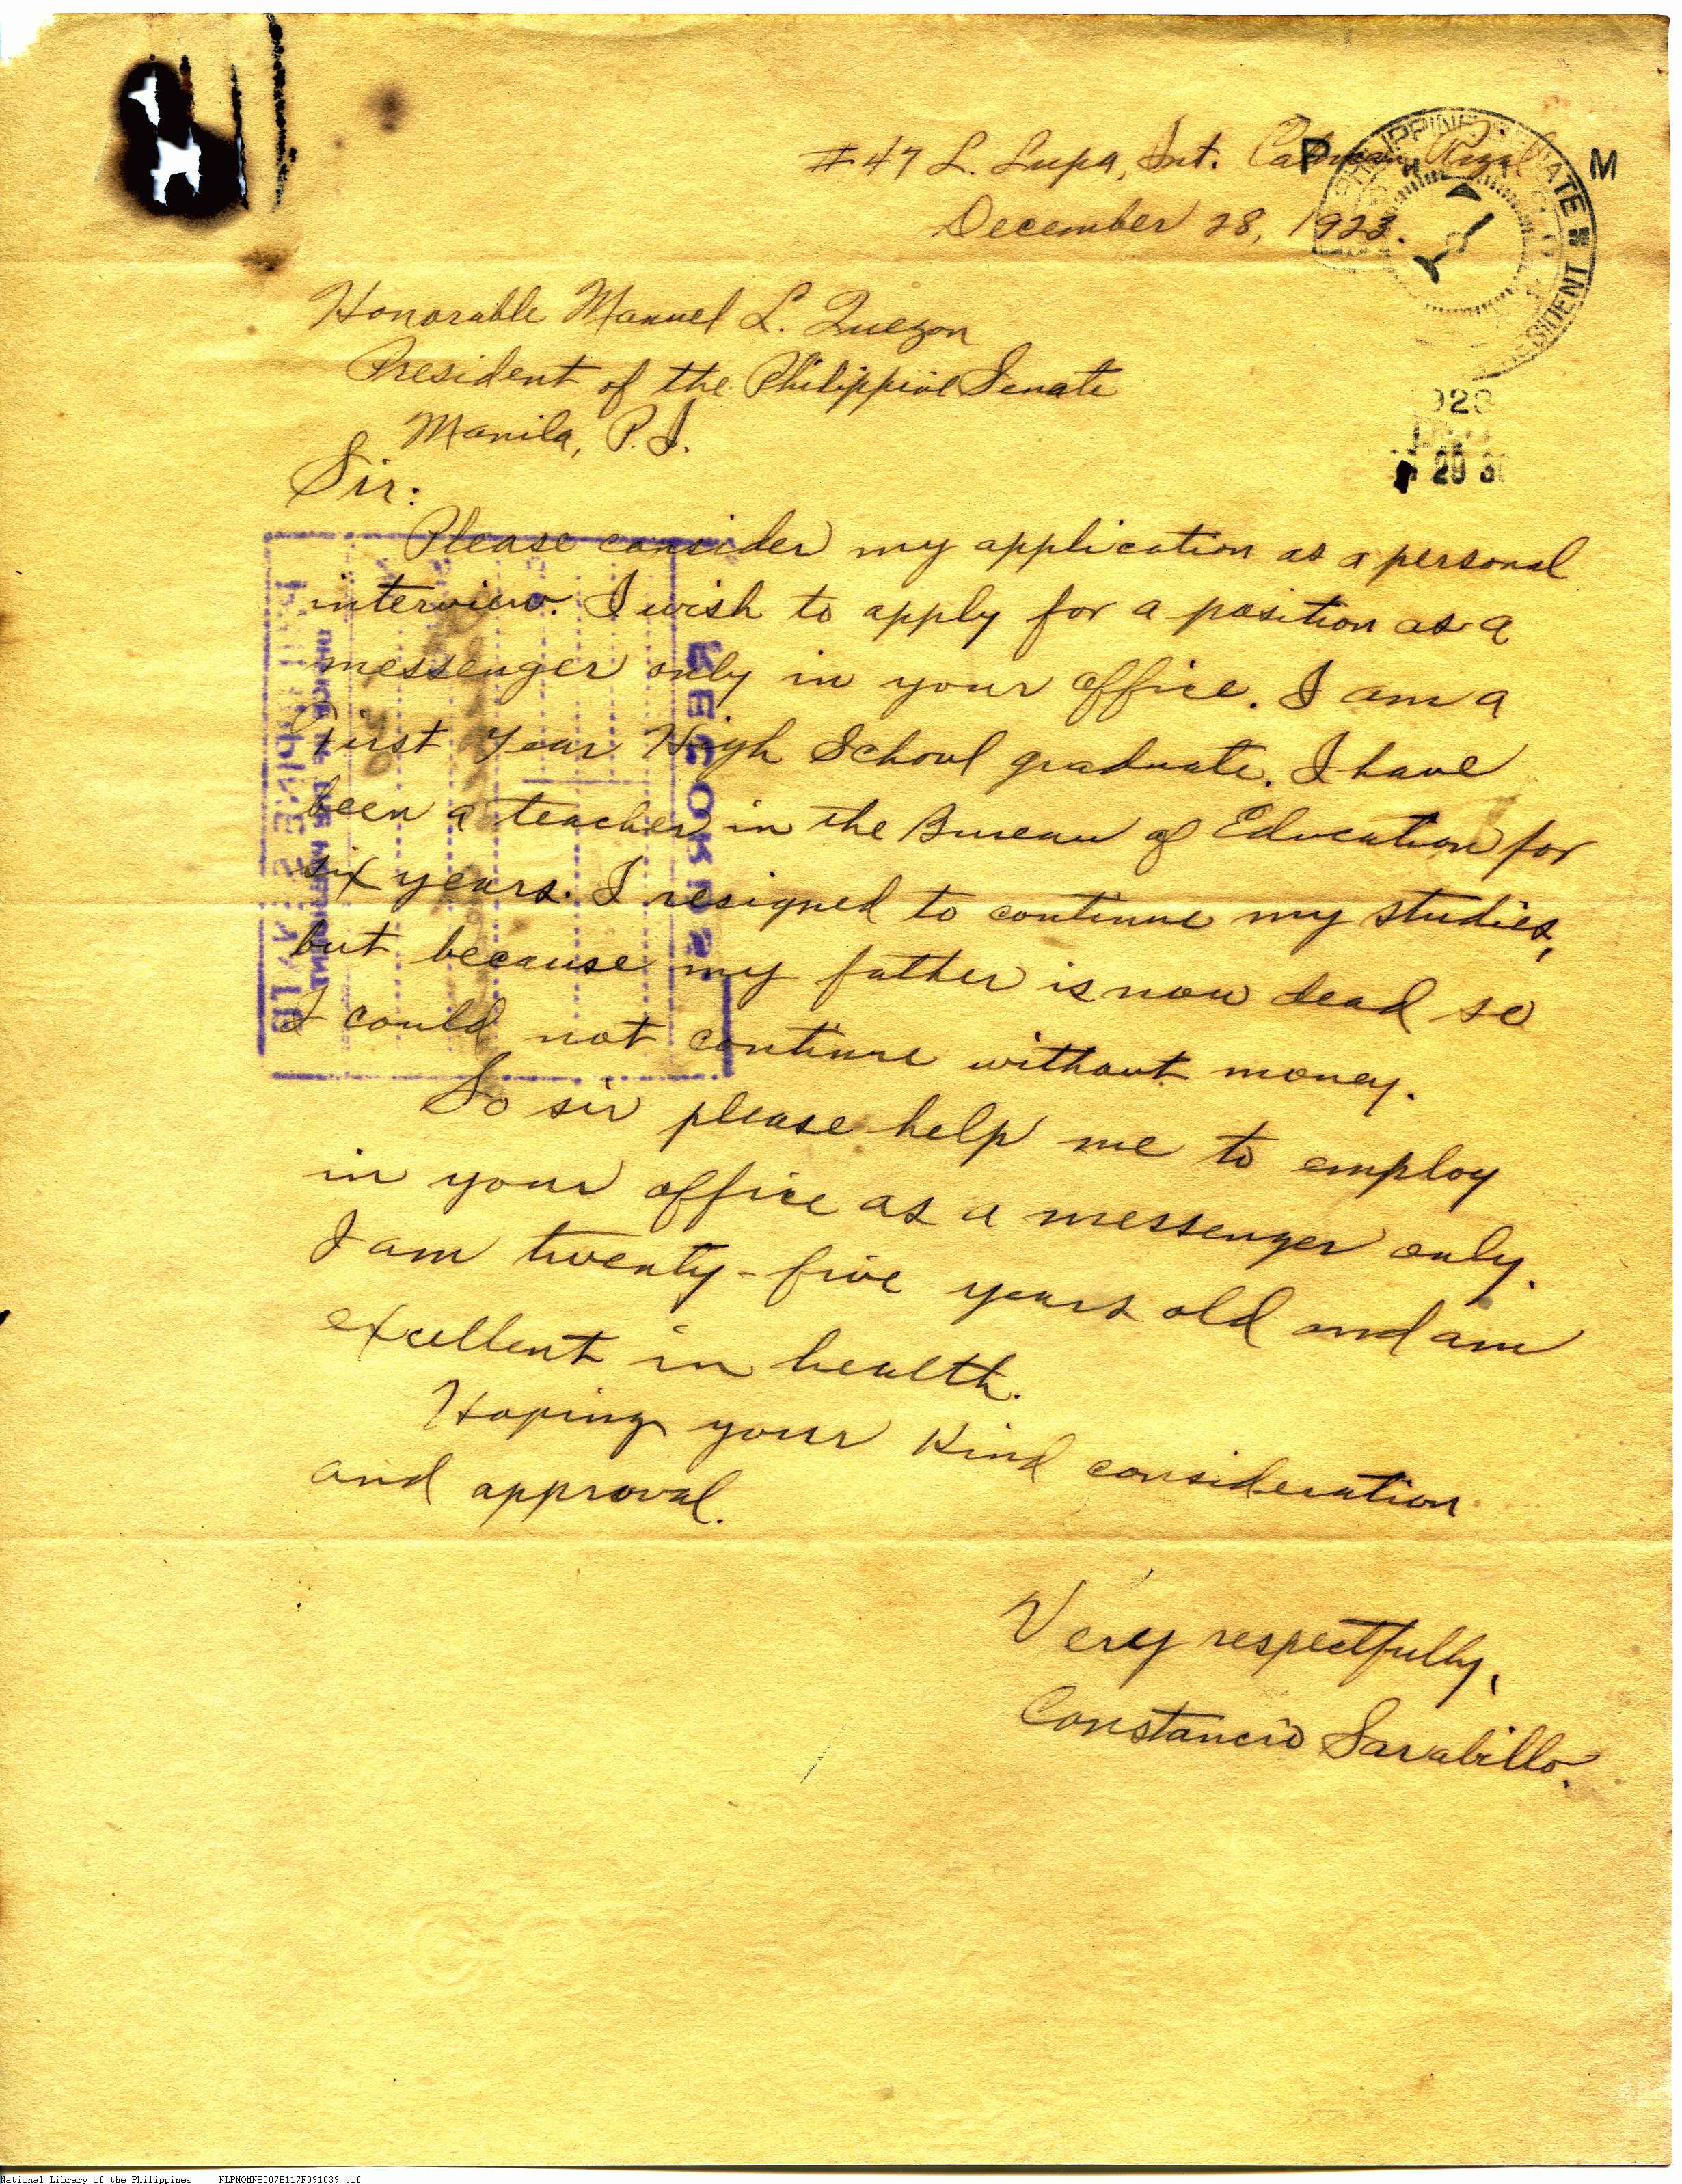 #47 L. Lupa, Int. Rizal
December 28, 1923.
PHILIPPINE SENATE
PRESIDENT
M
Honorable Manuel L. Quezon
President of the Philippine Senate
Manila, P.I.
29
Sir:
Please consider my application as a personal
interview. I wish to apply for a position as a
messenger only in your office. I am a
First Year High School graduate. I have
been a teacher in the Bureau of Education for
six years. I resigned to continue my studies,
but because my father is now dead so
I could not continue without money.
So sir please help me to employ
in your office as a messenger only.
I am twenty-five years old and am
excellent in health.
Hoping your kind consideration
and approval.
Very respectfully,
Constancio Sarabillo.
RECORDS
National Library of the Philippines NLPMQMNS007B117F091039.tif